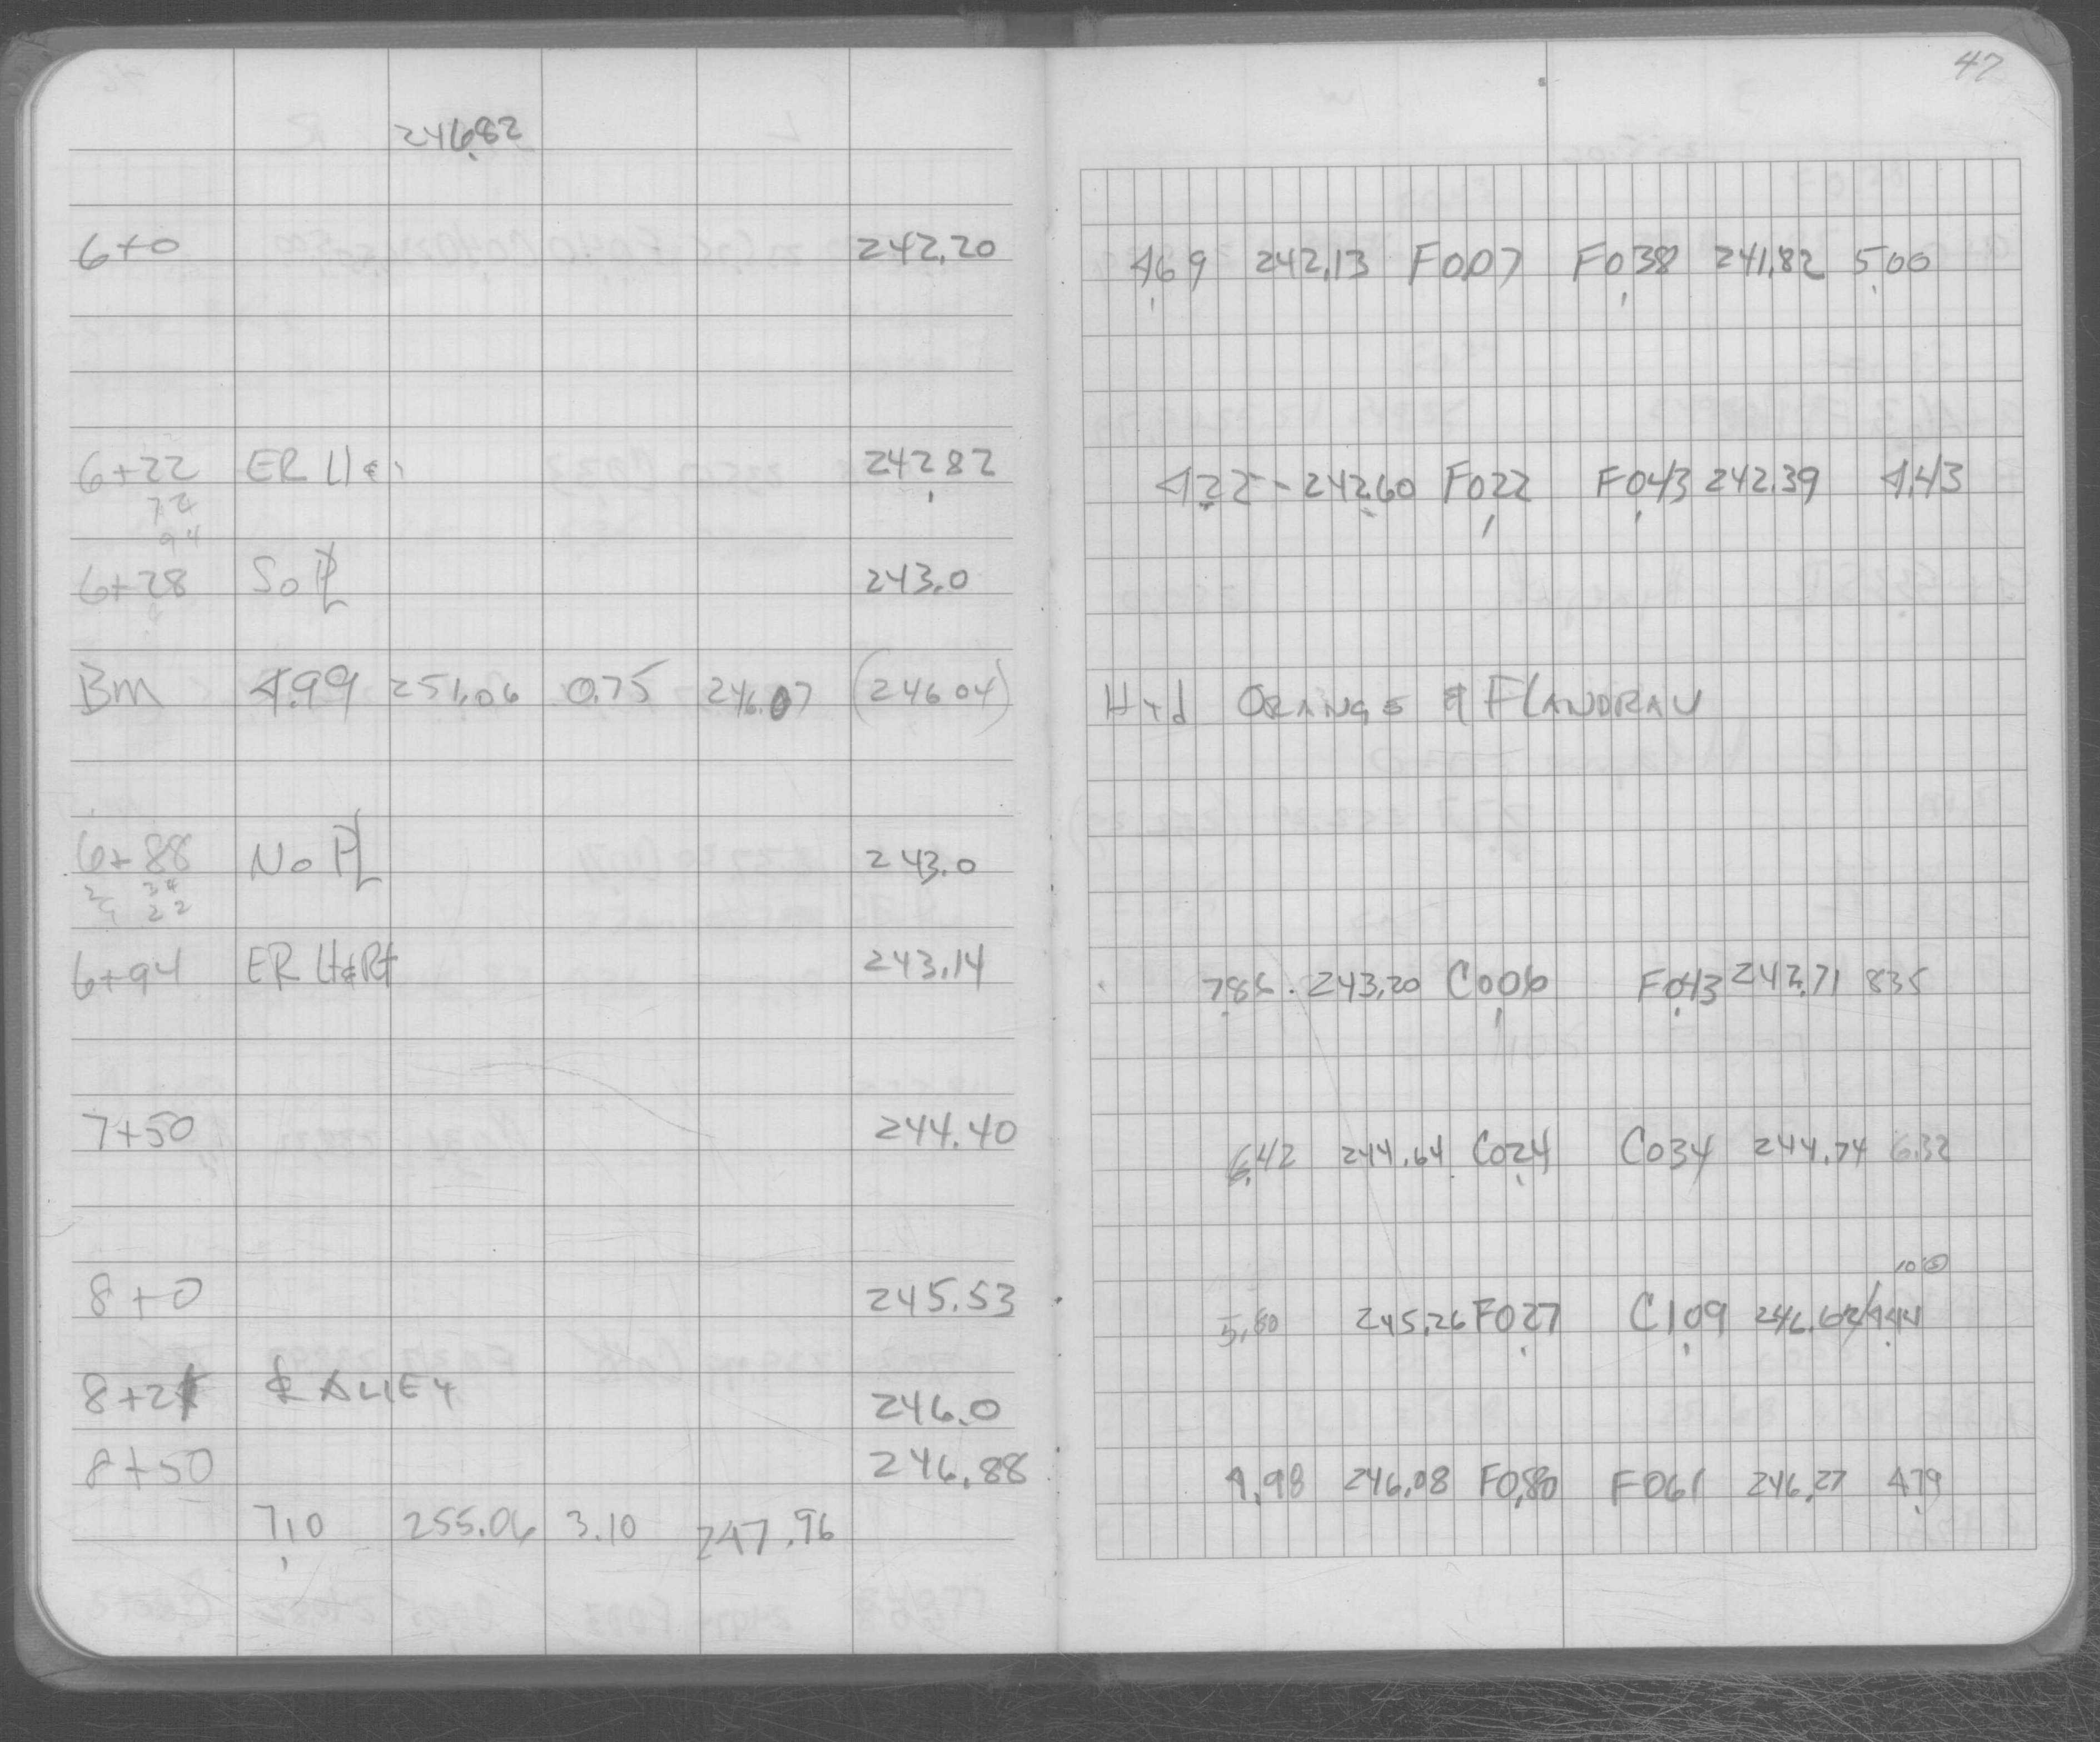 47
246.82
6+0 242.20 4.69 242.13 F0.07 F0.38 241.82 5.00
6+22 ER Lt & 242.82 4.22 - 242.60 F0.22 F0.43 242.39 4.43
72
94
6+28 So PL 243.0
Bm 4.99 251.06 0.75 246.07 (246.04) Hyd ORANGE & FLANDRAU
6+88 No PL 243.0
34
22
6+94 ER Lt&Rt 243.14 786 243.20 C0.06 F0.43 242.71 835
7+50 244.40 6.42 244.64 C0.24 C0.34 244.74 6.32
8+0 245.53 5.80 245.26 F0.27 C1.09 246.62/4.44
8+21 ℄ ALLEY 246.0
8+50 246.88 4.98 246.08 F0.80 F0.61 246.27 4.79
7.10 255.06 3.10 247.96